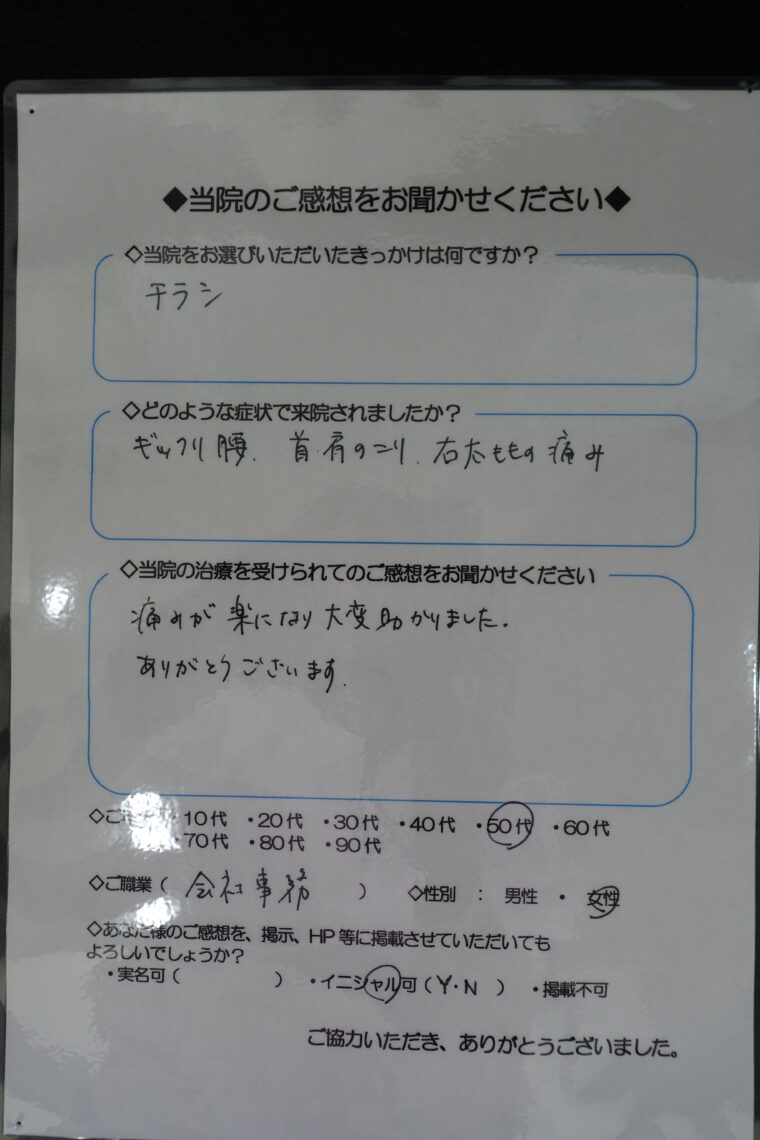 ◆当院のご感想をお聞かせください◆
◇当院をお選びいただいたきっかけは何ですか？
チラシ
◇どのような症状で来院されましたか？
ギックリ腰、首・肩のこり、右太ももの痛み
◇当院の治療を受けられてのご感想をお聞かせください
痛みが楽になり大変助かりました。
ありがとうございます。
・10代 ・20代 ・30代 ・40代 ・50代 ・60代
・70代 ・80代 ・90代
◇ご職業（ 会社事務 ） ◇性別 ： 男性 ・ 女性
◇あなた様のご感想を、掲示、HP等に掲載させていただいても
よろしいでしょうか？
・実名可（ ） ・イニシャル可（Y・N ） ・掲載不可
ご協力いただき、ありがとうございました。